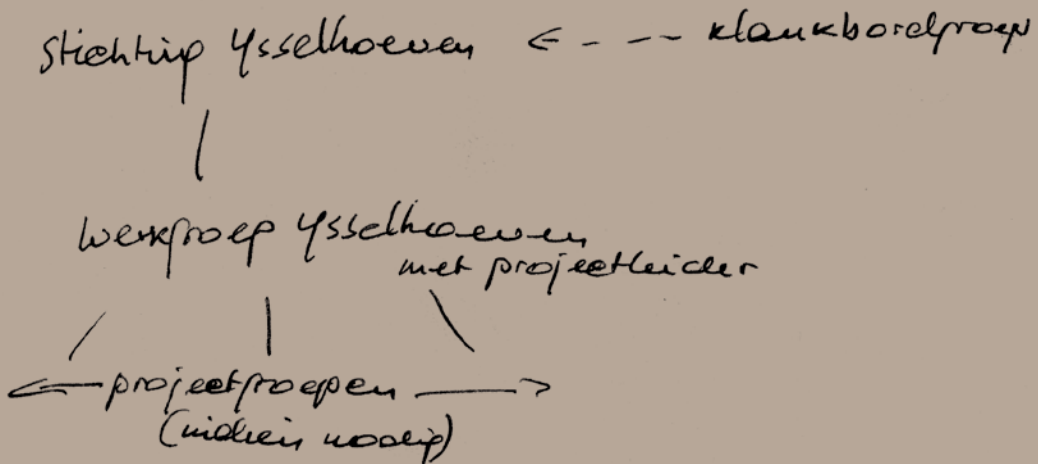 Stichting Ysselhoeven <- - - klankbordgroep
werkgroep Ysselhoeven
met projectleider
<— projectgroepen —>
(indien nodig)